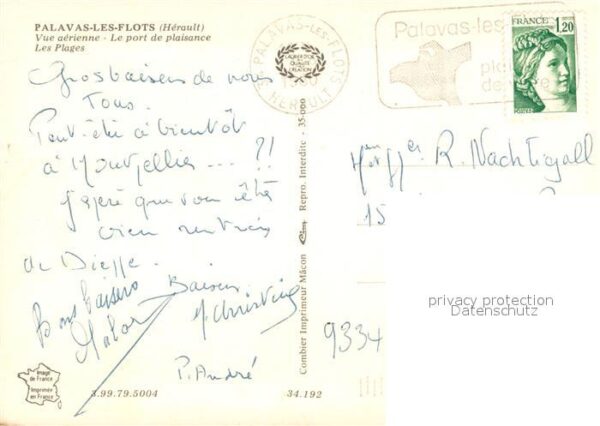 PALAVAS-LES-FLOTS (Hérault)
Vue aérienne - Le port de plaisance
Les Plages
Gros baisers de nous
Tous.
Peut-être à bientôt
à Montpellier ... ?!
J'espère que vous êtes
bien rentrés
de Dieppe.
Bons baisers
Baisers
M Christine
P. André
Image
de France
Imprimée
en France
3.99.79.5004
34.192
Combier Imprimeur Mâcon
Cim
Repro. Interdite - 35-000
PALAVAS-LES-FLOTS
HERAULT
Palavas-les
FRANCE
1,20
POSTES
R. Nachtigall
15
9334
privacy protection
Datenschutz